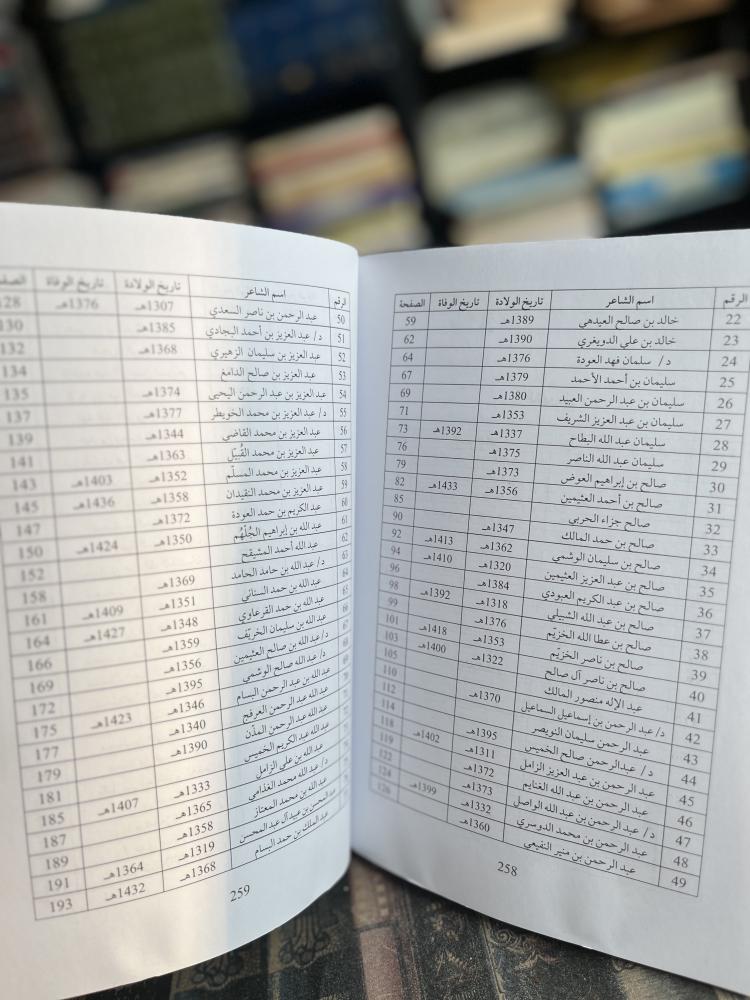 الرقم اسم الشاعر تاريخ الولادة تاريخ الوفاة الصفحة
22 خالد بن صالح العيدهي 1389هـ 59
23 خالد بن علي الدويغري 1390هـ 62
24 د/ سلمان فهد العودة 1376هـ 64
25 سليمان بن أحمد الأحمد 1379هـ 67
26 سليمان بن عبد الرحمن العبيد 1380هـ 69
27 سليمان بن عبد العزيز الشريف 1353هـ 71
28 سليمان عبد الله البطاح 1337هـ 1392هـ 73
29 سليمان عبد الله الناصر 1375هـ 76
30 صالح بن إبراهيم العوض 1373هـ 79
31 صالح بن أحمد العثيمين 1356هـ 1433هـ 82
32 صالح جزاء الحربي 85
33 صالح بن حمد المالك 1347هـ 90
34 صالح بن سليمان الوشمي 1362هـ 1413هـ 92
35 صالح بن عبد العزيز العثيمين 1320هـ 1410هـ 94
36 صالح بن عبد الكريم العبودي 1384هـ 96
37 صالح بن عبد الله الشبيلي 1318هـ 1392هـ 98
38 صالح بن عطا الله الخزيّم 1376هـ 99
39 صالح بن ناصر الخزيّم 1353هـ 1418هـ 101
40 صالح بن ناصر آل صالح 1322هـ 1400هـ 103
41 عبد الإله منصور المالك 105
42 د/ عبد الرحمن بن إسماعيل السماعيل 1370هـ 110
43 عبد الرحمن سليمان النويصر 112
44 د/ عبدالرحمن صالح الخميس 1395هـ 114
45 عبد الرحمن بن عبد العزيز الزامل 1311هـ 1402هـ 118
46 عبد الرحمن بن عبد الله الغنايم 1372هـ 119
47 د/ عبد الرحمن بن عبد الله الواصل 1373هـ 122
48 عبد الرحمن بن محمد الدوسري 1332هـ 1399هـ 124
49 عبد الرحمن بن منير النفيعي 1360هـ 126
258
الرقم اسم الشاعر تاريخ الولادة تاريخ الوفاة
50 عبد الرحمن بن ناصر السعدي 1307هـ 1376هـ 128
51 د/ عبد العزيز بن أحمد البجادي 1385هـ 130
52 عبد العزيز بن سليمان الزهيري 1368هـ 132
53 عبد العزيز بن صالح الدامغ 134
54 عبد العزيز بن عبد الرحمن اليحيى 1374هـ 135
55 د/ عبد العزيز بن محمد الخويطر 1377هـ 137
56 عبد العزيز بن محمد القاضي 1344هـ 139
57 عبد العزيز بن محمد القُبيّل 1363هـ 141
58 عبد العزيز بن محمد المسلّم 1352هـ 1403هـ 143
59 عبد العزيز بن محمد النقيدان 1358هـ 1436هـ 145
60 عبد الكريم بن حمد العودة 1372هـ 147
61 عبد الله بن إبراهيم الجُلْهُم 1350هـ 1424هـ 150
62 عبد الله أحمد المشيقح 152
63 د/ عبد الله بن حامد الحامد 1369هـ 158
64 عبد الله بن حمد السناني 1351هـ 1409هـ 161
65 عبد الله بن حمد القرعاوي 1348هـ 1427هـ 164
66 عبد الله بن سليمان الخريّف 1359هـ 166
67 د/ عبد الله بن صالح العثيمين 1356هـ 169
68 د/ عبد الله صالح الوشمي 1395هـ 172
69 عبد الله بن عبد الرحمن البسام 1346هـ 1423هـ 175
عبد الله عبد الرحمن العرفج 1340هـ 177
عبد الله عبد الرحمن المذّن 1390هـ 179
عبد الله عبد الكريم الخميس 181
عبد الله بن علي الزامل 1333هـ 1407هـ 185
د/ عبد الله محمد الغذامي 1365هـ 187
عبد الله بن محمد المعتاز 1358هـ 189
عبد المحسن بن عبيد آل عبد المحسن 1319هـ 1364هـ 191
عبد الملك بن حمد البسام 1368هـ 1432هـ 193
259